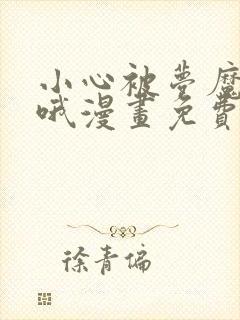 小心被夢魔
哦漫畫免費
徐青偏